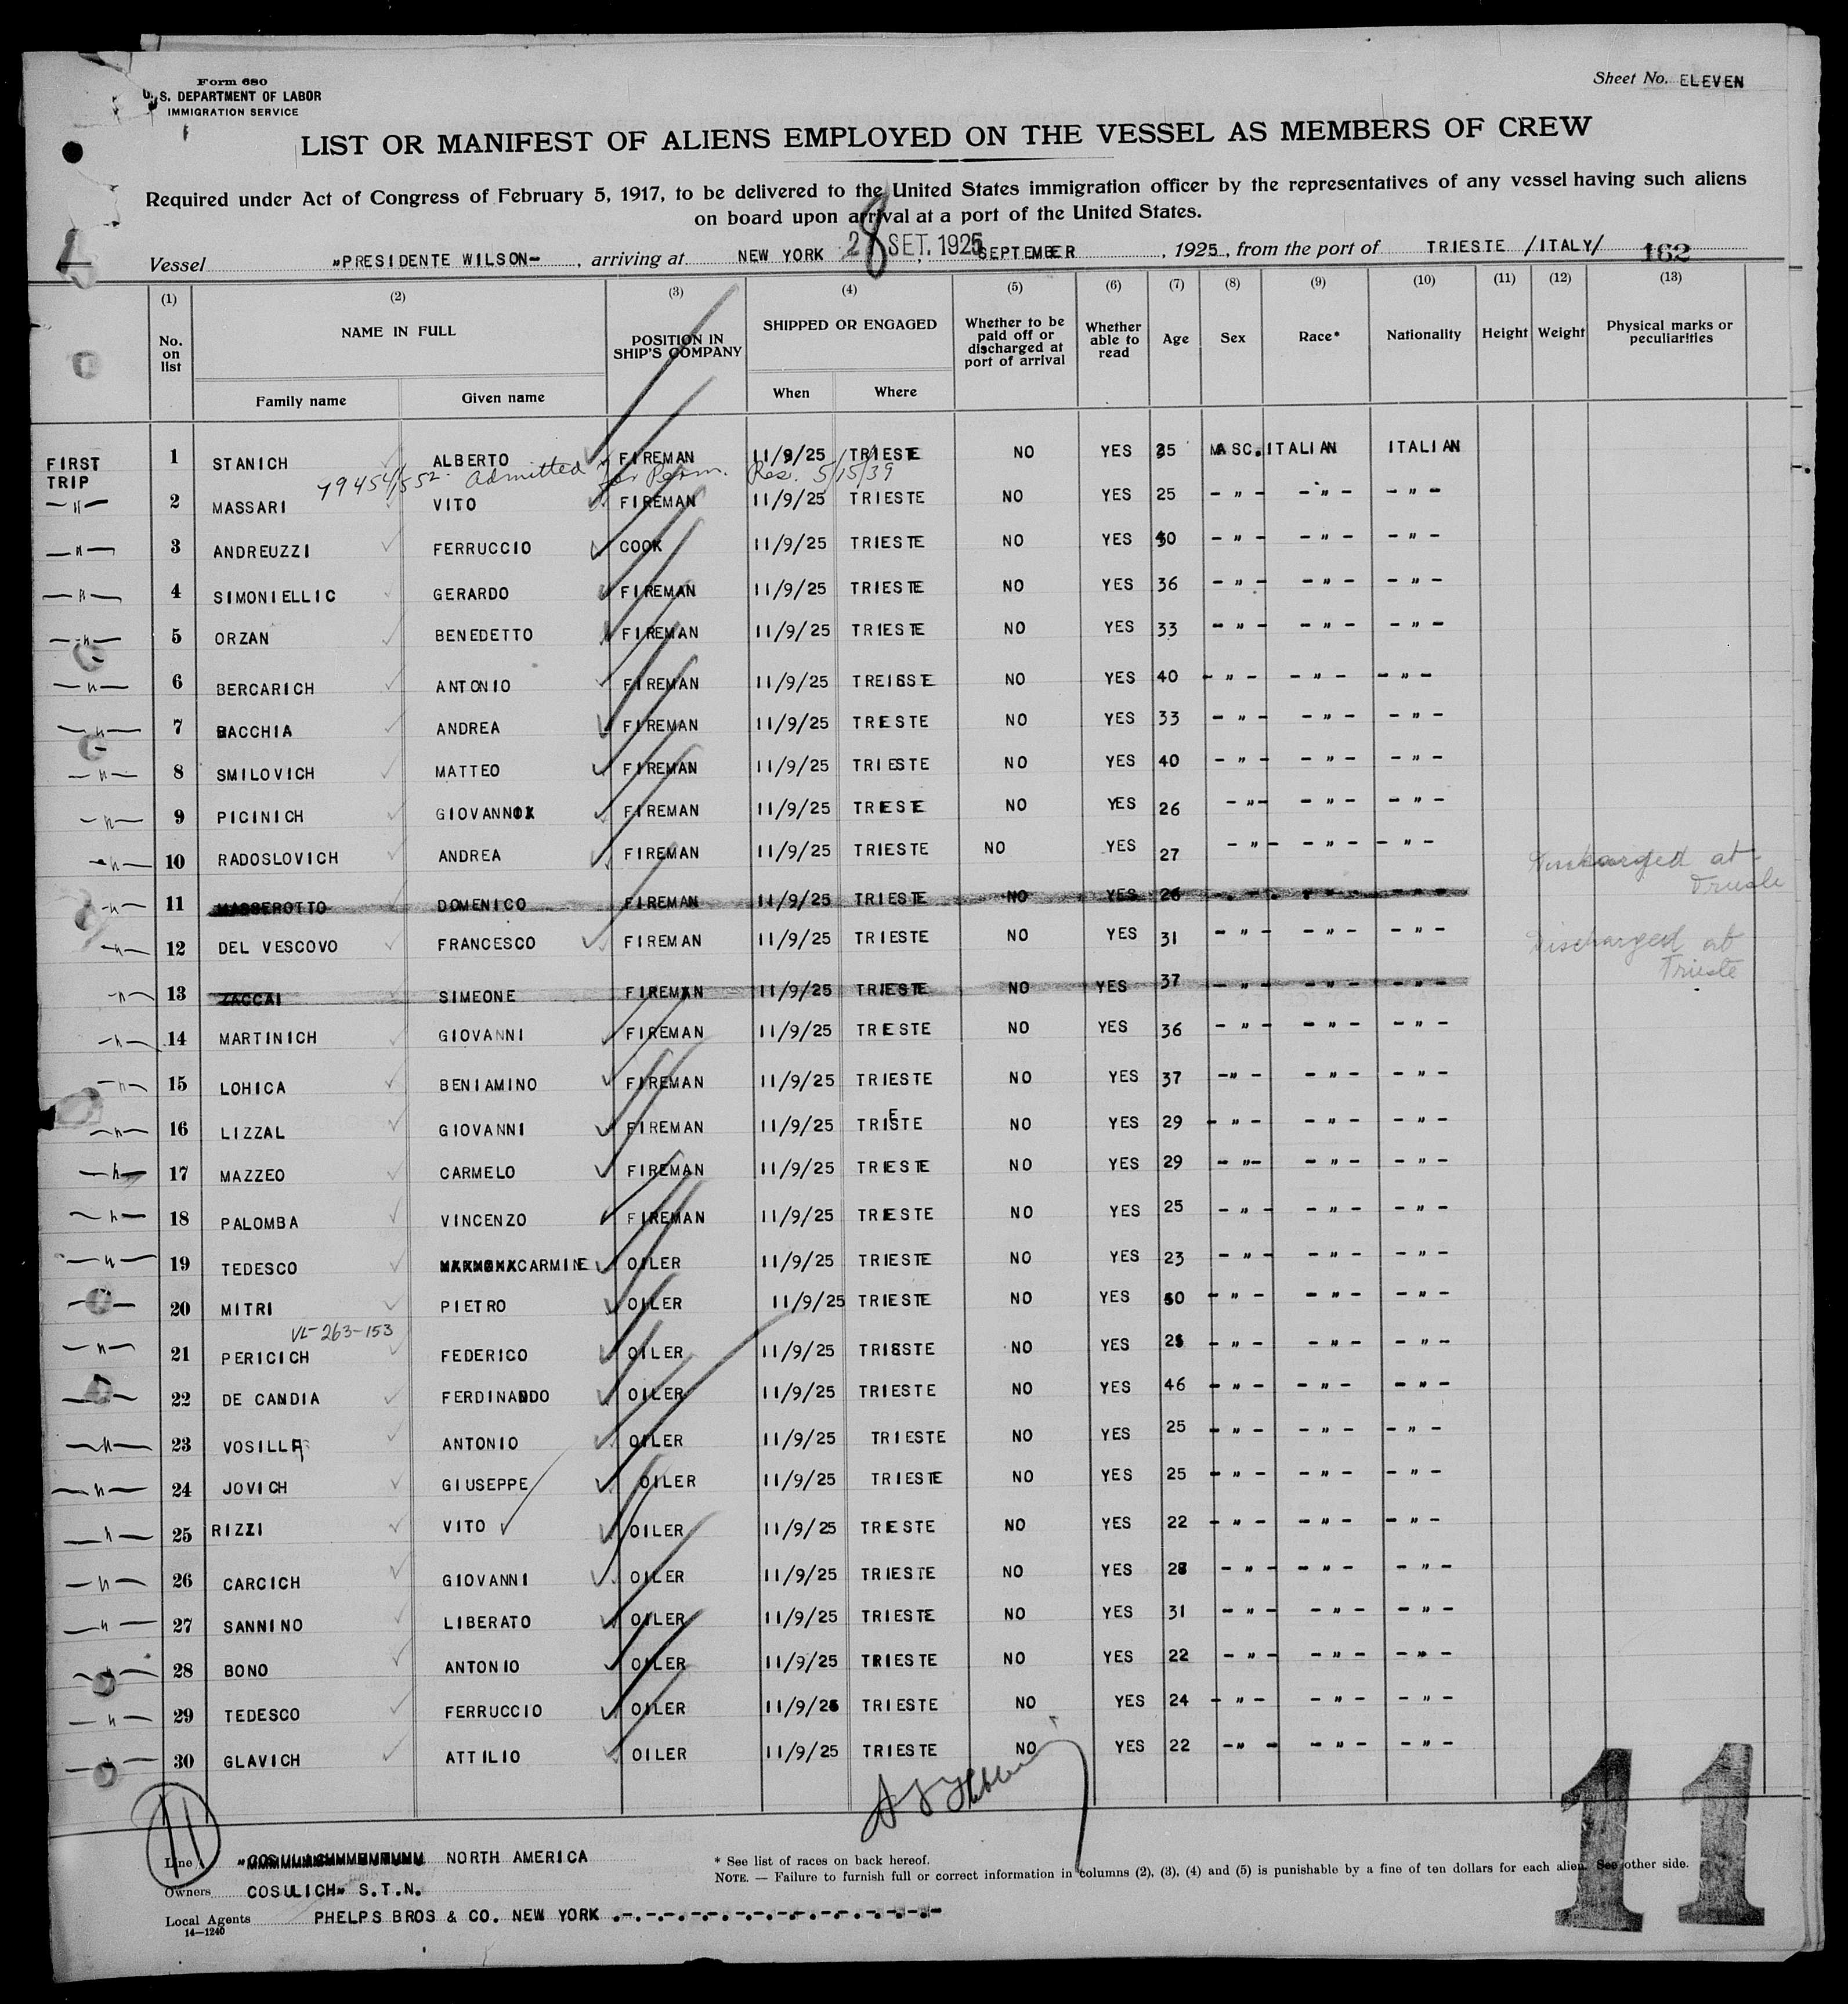 Form 680
U. S. DEPARTMENT OF LABOR
IMMIGRATION SERVICE
Sheet No. ELEVEN
LIST OR MANIFEST OF ALIENS EMPLOYED ON THE VESSEL AS MEMBERS OF CREW
Required under Act of Congress of February 5, 1917, to be delivered to the United States immigration officer by the representatives of any vessel having such aliens
on board upon arrival at a port of the United States.
Vessel "PRESIDENTE WILSON" , arriving at NEW YORK 28 SET. 1925 SEPTEMBER , 1925, from the port of TRIESTE /ITALY/ 162
(1) (2) (3) (4) (5) (6) (7) (8) (9) (10) (11) (12) (13)
No. on list NAME IN FULL POSITION IN SHIP'S COMPANY SHIPPED OR ENGAGED Whether to be paid off or discharged at port of arrival Whether able to read Age Sex Race* Nationality Height Weight Physical marks or peculiarities
Family name Given name When Where
FIRST TRIP 1 STANICH ALBERTO FIREMAN 11/9/25 TRIESTE NO YES 35 MASC. ITALIAN ITALIAN
Admitted for Perm. Res. 5/15/39
— " — 2 MASSARI VITO FIREMAN 11/9/25 TRIESTE NO YES 25 - " - - " - - " -
— " — 3 ANDREUZZI FERRUCCIO COOK 11/9/25 TRIESTE NO YES - " - - " - - " -
— " — 4 SIMONIELLIC GERARDO FIREMAN 11/9/25 TRIESTE NO YES 36 - " - - " - - " -
— " — 5 ORZAN BENEDETTO FIREMAN 11/9/25 TRIESTE NO YES 33 - " - - " - - " -
— " — 6 BERCARICH ANTONIO FIREMAN 11/9/25 TREISSTE NO YES 40 - " - - " - - " -
— " — 7 BACCHIA ANDREA FIREMAN 11/9/25 TRIESTE NO YES 33 - " - - " - - " -
— " — 8 SMILOVICH MATTEO FIREMAN 11/9/25 TRIESTE NO YES 40 - " - - " - - " -
— " — 9 PICINICH GIOVANNI FIREMAN 11/9/25 TRIESTE NO YES 26 - " - - " - - " -
— " — 10 RADOSLOVICH ANDREA FIREMAN 11/9/25 TRIESTE NO YES 27 - " - - " - - " -
Discharged at Trieste
— " — 11 MASSEROTTO DOMENICO FIREMAN 11/9/25 TRIESTE NO YES 26 - " - - " - - " -
— " — 12 DEL VESCOVO FRANCESCO FIREMAN 11/9/25 TRIESTE NO YES 31 - " - - " - - " -
Discharged at Trieste
— " — 13 ZACCAI SIMEONE FIREMAN 11/9/25 TRIESTE NO YES 37 - " - - " - - " -
— " — 14 MARTINICH GIOVANNI FIREMAN 11/9/25 TRIESTE NO YES 36 - " - - " - - " -
— " — 15 LOHICA BENIAMINO FIREMAN 11/9/25 TRIESTE NO YES 37 - " - - " - - " -
— " — 16 LIZZAL GIOVANNI FIREMAN 11/9/25 TRIESTE NO YES 29 - " - - " - - " -
— " — 17 MAZZEO CARMELO FIREMAN 11/9/25 TRIESTE NO YES 29 - " - - " - - " -
— " — 18 PALOMBA VINCENZO FIREMAN 11/9/25 TRIESTE NO YES 25 - " - - " - - " -
— " — 19 TEDESCO CARMINE OILER 11/9/25 TRIESTE NO YES 23 - " - - " - - " -
20 MITRI PIETRO OILER 11/9/25 TRIESTE NO YES - " - - " - - " -
VL-263-153
— " — 21 PERICICH FEDERICO OILER 11/9/25 TRIESTE NO YES - " - - " - - " -
22 DE CANDIA FERDINANDO OILER 11/9/25 TRIESTE NO YES 46 - " - - " - - " -
— " — 23 VOSILLA ANTONIO OILER 11/9/25 TRIESTE NO YES 25 - " - - " - - " -
— " — 24 JOVICH GIUSEPPE OILER 11/9/25 TRIESTE NO YES 25 - " - - " - - " -
— " — 25 RIZZI VITO OILER 11/9/25 TRIESTE NO YES 22 - " - - " - - " -
— " — 26 CARCICH GIOVANNI OILER 11/9/25 TRIESTE NO YES 28 - " - - " - - " -
— " — 27 SANNINO LIBERATO OILER 11/9/25 TRIESTE NO YES 31 - " - - " - - " -
— " — 28 BONO ANTONIO OILER 11/9/25 TRIESTE NO YES 22 - " - - " - - " -
— " — 29 TEDESCO FERRUCCIO OILER 11/9/25 TRIESTE NO YES 24 - " - - " - - " -
— " — 30 GLAVICH ATTILIO OILER 11/9/25 TRIESTE NO YES 22 - " - - " - - " -
11
11
Line NORTH AMERICA
Owners COSULICH" S.T.N.
Local Agents PHELPS BROS & CO. NEW YORK
14—1240
* See list of races on back hereof.
NOTE. — Failure to furnish full or correct information in columns (2), (3), (4) and (5) is punishable by a fine of ten dollars for each alien. See other side.